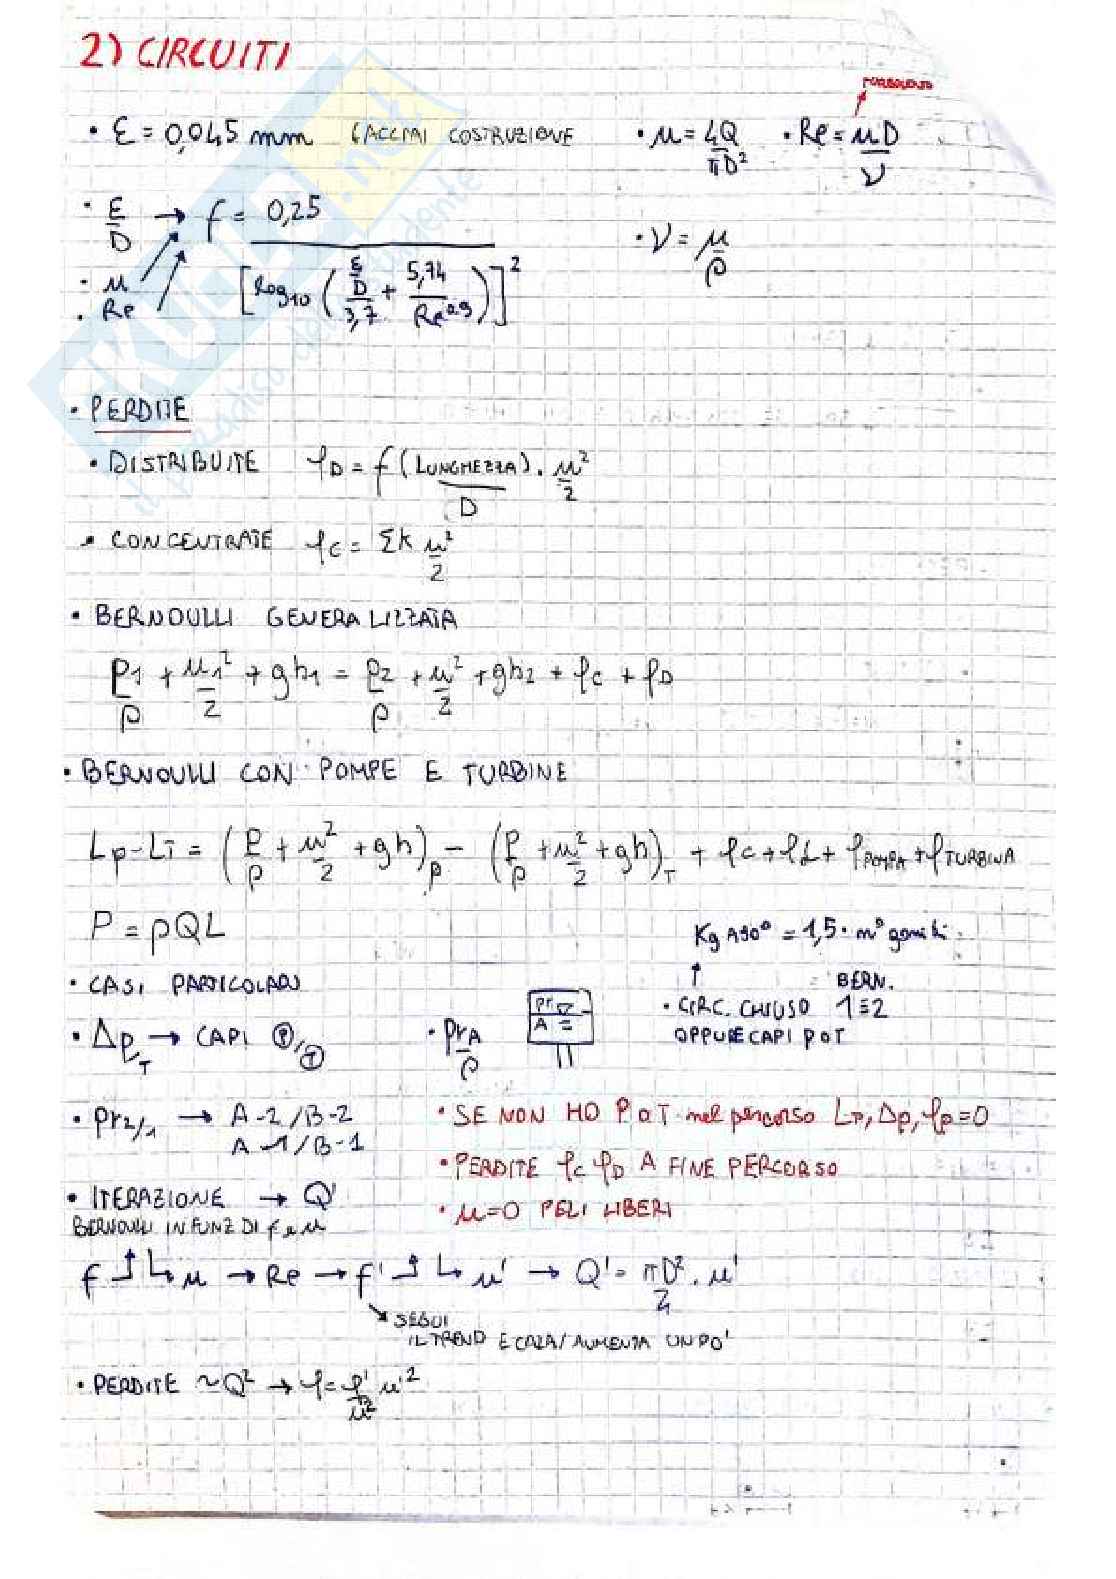 2) CIRCUITI
TURBOLENTO
• ε = 0,045 mm (ACCIAI COSTRUZIONE • u = 4Q/πD² • Re = uD/ν
• ε/D → f = 0,25 / [log10 (ε/D/3,7 + 5,74/Re^0,9)]² • ν = μ/ρ
• u
• Re
• PERDITE
• DISTRIBUITE φD = f (LUNGHEZZA)/D · u²/2
• CONCENTRATE φC = Σk u²/2
• BERNOULLI GENERALIZZATA
P1/ρ + u1²/2 + gh1 = P2/ρ + u²/2 + gh2 + φC + φD
• BERNOULLI CON POMPE E TURBINE
Lp-LT = (P/ρ + u²/2 + gh)p - (P/ρ + u²/2 + gh)T + φC + φL + φPOMPA + φTURBINA
P = ρQL
Kg A90° = 1,5 · n° gomiti
• CASI PARTICOLARI
BERN.
• CIRC. CHIUSO 1≡2
OPPURE CAPI P O T
• Δp,T → CAPI P, T • PrA/ρ
Pr
A
• Pr2/1 → A-2/B-2
A-1/B-1
• SE NON HO P O T nel percorso Lp, Δp, φp=0
• PERDITE φC φD A FINE PERCORSO
• u=0 PELI LIBERI
• ITERAZIONE → Q'
BERNOULLI IN FUNZ DI f e u
f ↥ ↳ u → Re → f' ↥ ↳ u' → Q' = πD²/4 · u'
SEGUI
IL TREND E CALA/AUMENTA UN PO'
• PERDITE ~Q² → φ = φ'/u² u'²
SKUOLA.net
il paradiso dello studente